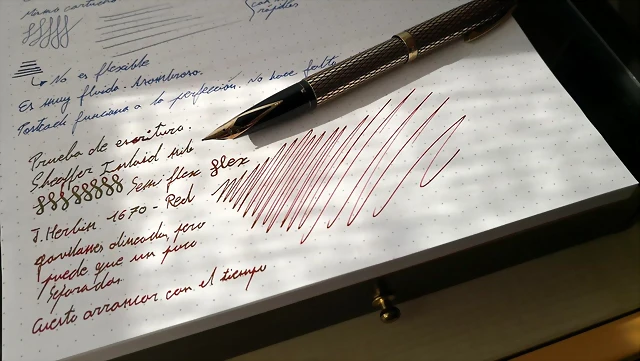 Mismo cartucho
rápidos
↳ No es flexible
Es muy fluido. Asombroso.
Posteado funciona a la perfección. No hace falta
Prueba de escritura.
Sheaffer Inlaid nib
Semi flex flex
J. Herbin 1670 - Red
gavilanes alineados, pero
puede que un poco
separados
Cuesta arrancar con el tiempo